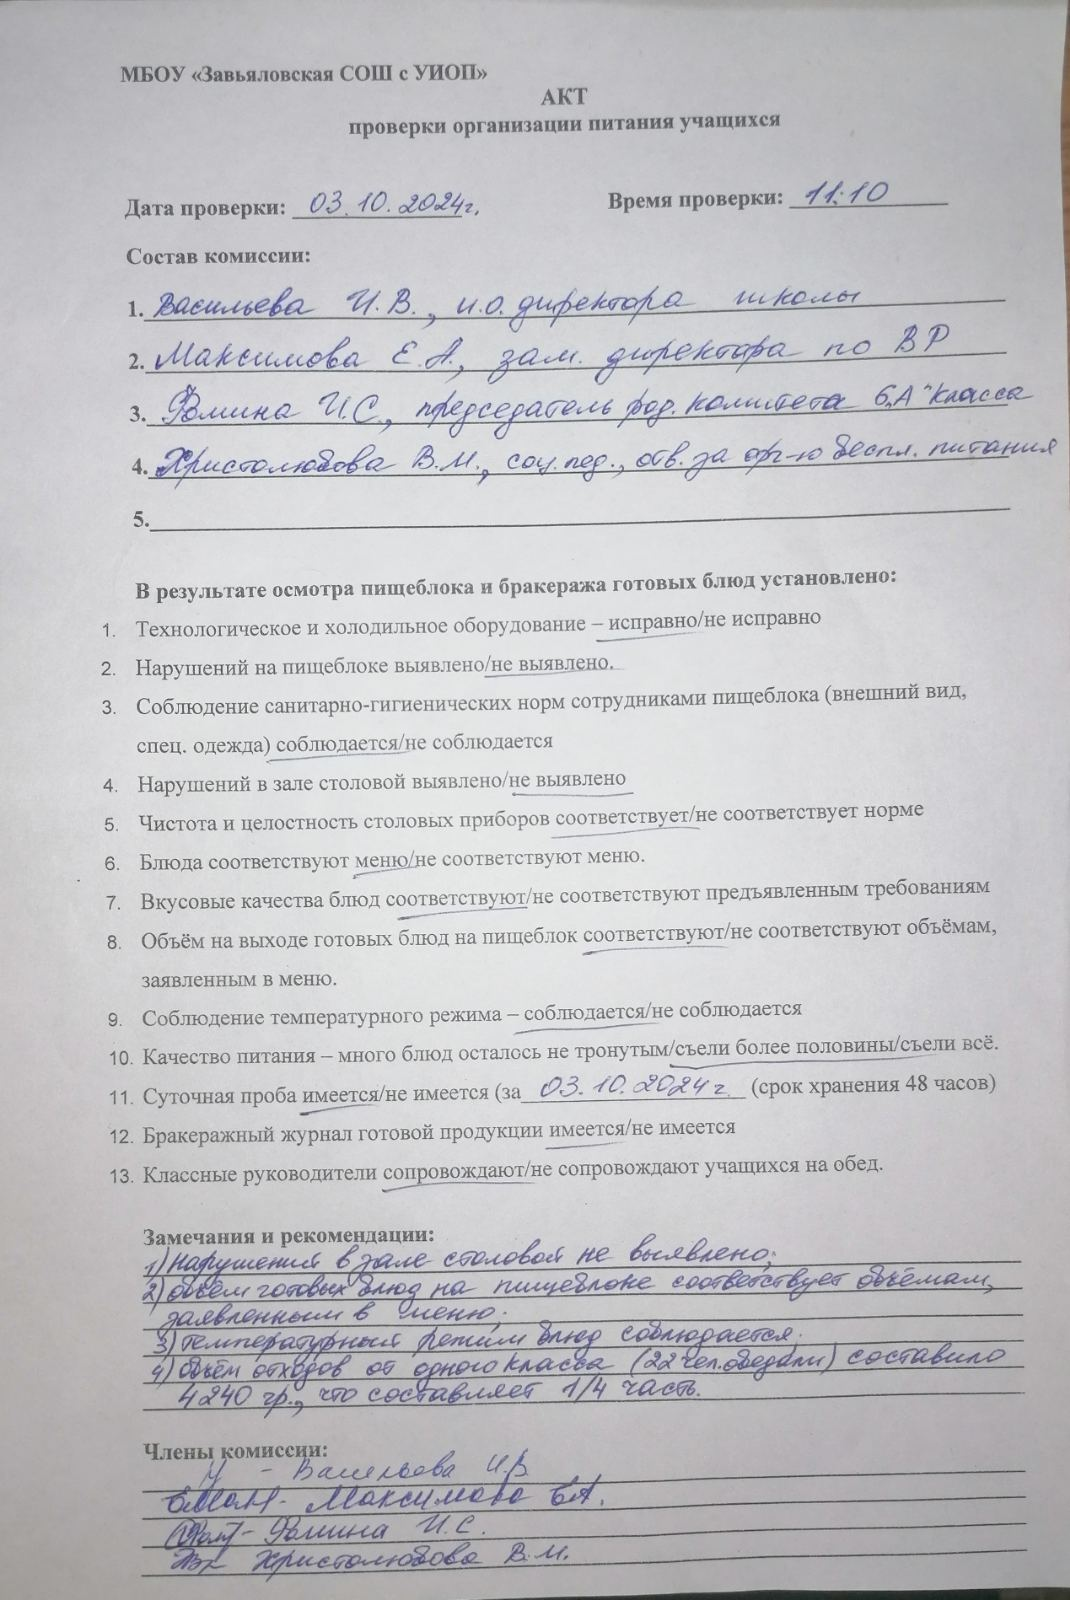 МБОУ «Завьяловская СОШ с УИОП»
АКТ
проверки организации питания учащихся
Дата проверки: 03.10.2024г. Время проверки: 11:10
Состав комиссии:
1. Васильева И.В., и.о. директора школы
2. Максимова Е.А., зам. директора по ВР
3. Фомина И.С., председатель род. комитета 6„А" класса
4. Христолюбова В.М., соц.пед., отв. за орг-ю беспл. питания
5.
В результате осмотра пищеблока и бракеража готовых блюд установлено:
1. Технологическое и холодильное оборудование – исправно/не исправно
2. Нарушений на пищеблоке выявлено/не выявлено.
3. Соблюдение санитарно-гигиенических норм сотрудниками пищеблока (внешний вид,
спец. одежда) соблюдается/не соблюдается
4. Нарушений в зале столовой выявлено/не выявлено
5. Чистота и целостность столовых приборов соответствует/не соответствует норме
6. Блюда соответствуют меню/не соответствуют меню.
7. Вкусовые качества блюд соответствуют/не соответствуют предъявленным требованиям
8. Объём на выходе готовых блюд на пищеблок соответствуют/не соответствуют объёмам,
заявленным в меню.
9. Соблюдение температурного режима – соблюдается/не соблюдается
10. Качество питания – много блюд осталось не тронутым/съели более половины/съели всё.
11. Суточная проба имеется/не имеется (за 03.10.2024г. (срок хранения 48 часов)
12. Бракеражный журнал готовой продукции имеется/не имеется
13. Классные руководители сопровождают/не сопровождают учащихся на обед.
Замечания и рекомендации:
1) Нарушений в зале столовой не выявлено;
2) объём готовых блюд на пищеблоке соответствует объёмам,
заявленным в меню;
3) температурный режим блюд соблюдается.
4) объём отходов от одного класса (22 чел. обедали) составило
4240 гр., что составляет 1/4 часть.
Члены комиссии:
- Васильева И.В
- Максимова Е.А.
- Фомина И.С.
Христолюбова В.М.